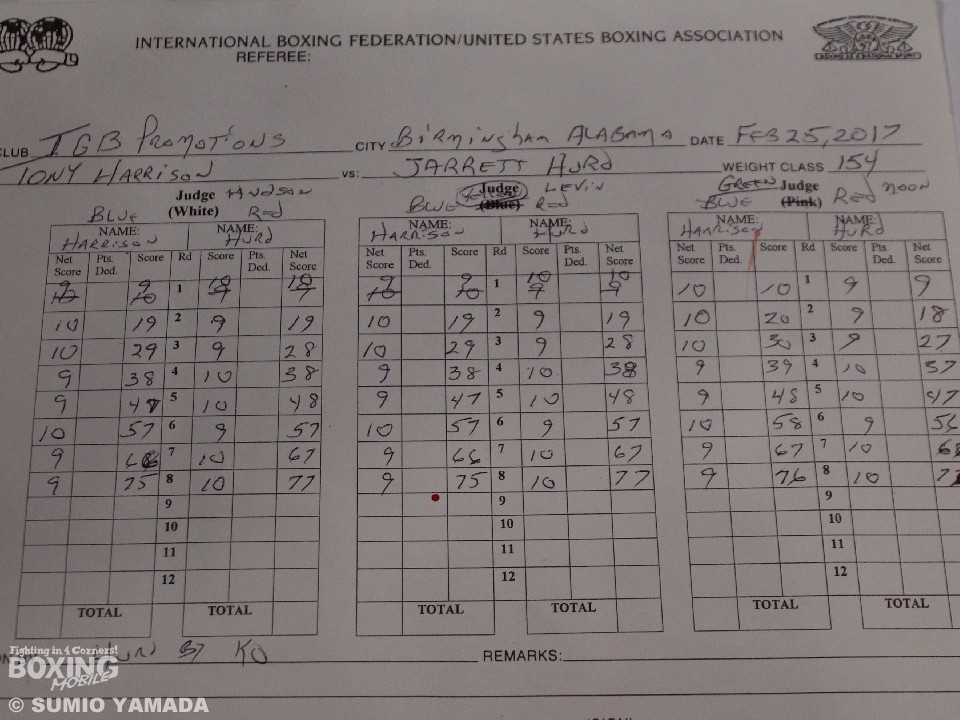 INTERNATIONAL BOXING FEDERATION/UNITED STATES BOXING ASSOCIATION
REFEREE:
CLUB TGB PROMOTIONS CITY BIRMINGHAM ALABAMA DATE FEB 25, 2017
TONY HARRISON vs: JARRETT HURD WEIGHT CLASS 154
Judge HUDSON Judge LEVIN GREEN Judge Red MOON
BLUE (White) Red BLUE (Blue) Red BLUE (Pink)
NAME: NAME: NAME: NAME: NAME: NAME:
HARRISON HURD HARRISON HURD HARRISON HURD
Net Score Pts. Ded. Score Rd Score Pts. Ded. Net Score Net Score Pts. Ded. Score Rd Score Pts. Ded. Net Score Net Score Pts. Ded. Score Rd Score Pts. Ded. Net Score
9 10 9 10 1 10 9 10 9 9 10 9 10 1 10 9 10 9 10 10 1 9 9
10 19 2 9 19 10 19 2 9 19 10 20 2 9 18
10 29 3 9 28 10 29 3 9 28 10 30 3 9 27
9 38 4 10 38 9 38 4 10 38 9 39 4 10 37
9 47 5 10 48 9 47 5 10 48 9 48 5 10 47
10 57 6 9 57 10 57 6 9 57 10 58 6 9 56
9 66 7 10 67 9 66 7 10 67 9 67 7 10
9 75 8 10 77 9 75 8 10 77 9 76 8 10
9 9 9
10 10 10
11 11 11
12 12 12
TOTAL TOTAL TOTAL TOTAL TOTAL TOTAL
HURD BY KO REMARKS:
Fighting in 4 Corners!
BOXING
MOBILE
© SUMIO YAMADA